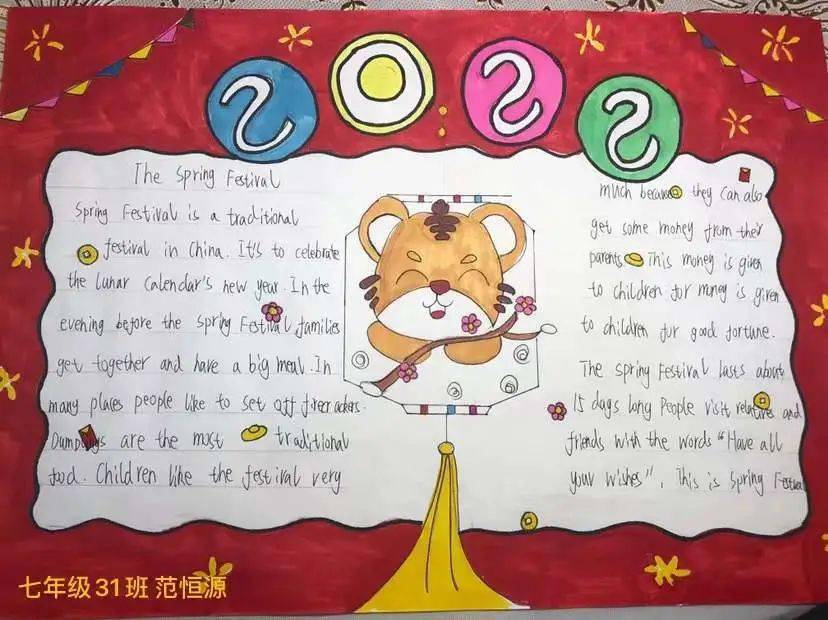 2022
The Spring Festival
Spring Festival is a traditional
festival in China. It's to celebrate
the lunar calendar's new year. In the
evening before the Spring Festival families
get together and have a big meal. In
many places people like to set off firecrackers.
Dumplings are the most traditional
food. Children like the festival very
much because they can also
get some money from their
parents. This money is given
to children for money is given
to children for good fortune.
The Spring Festival lasts about
15 days long People visit relatives and
friends with the words "Have all
your wishes". This is Spring Festival
七年级31班 范恒源